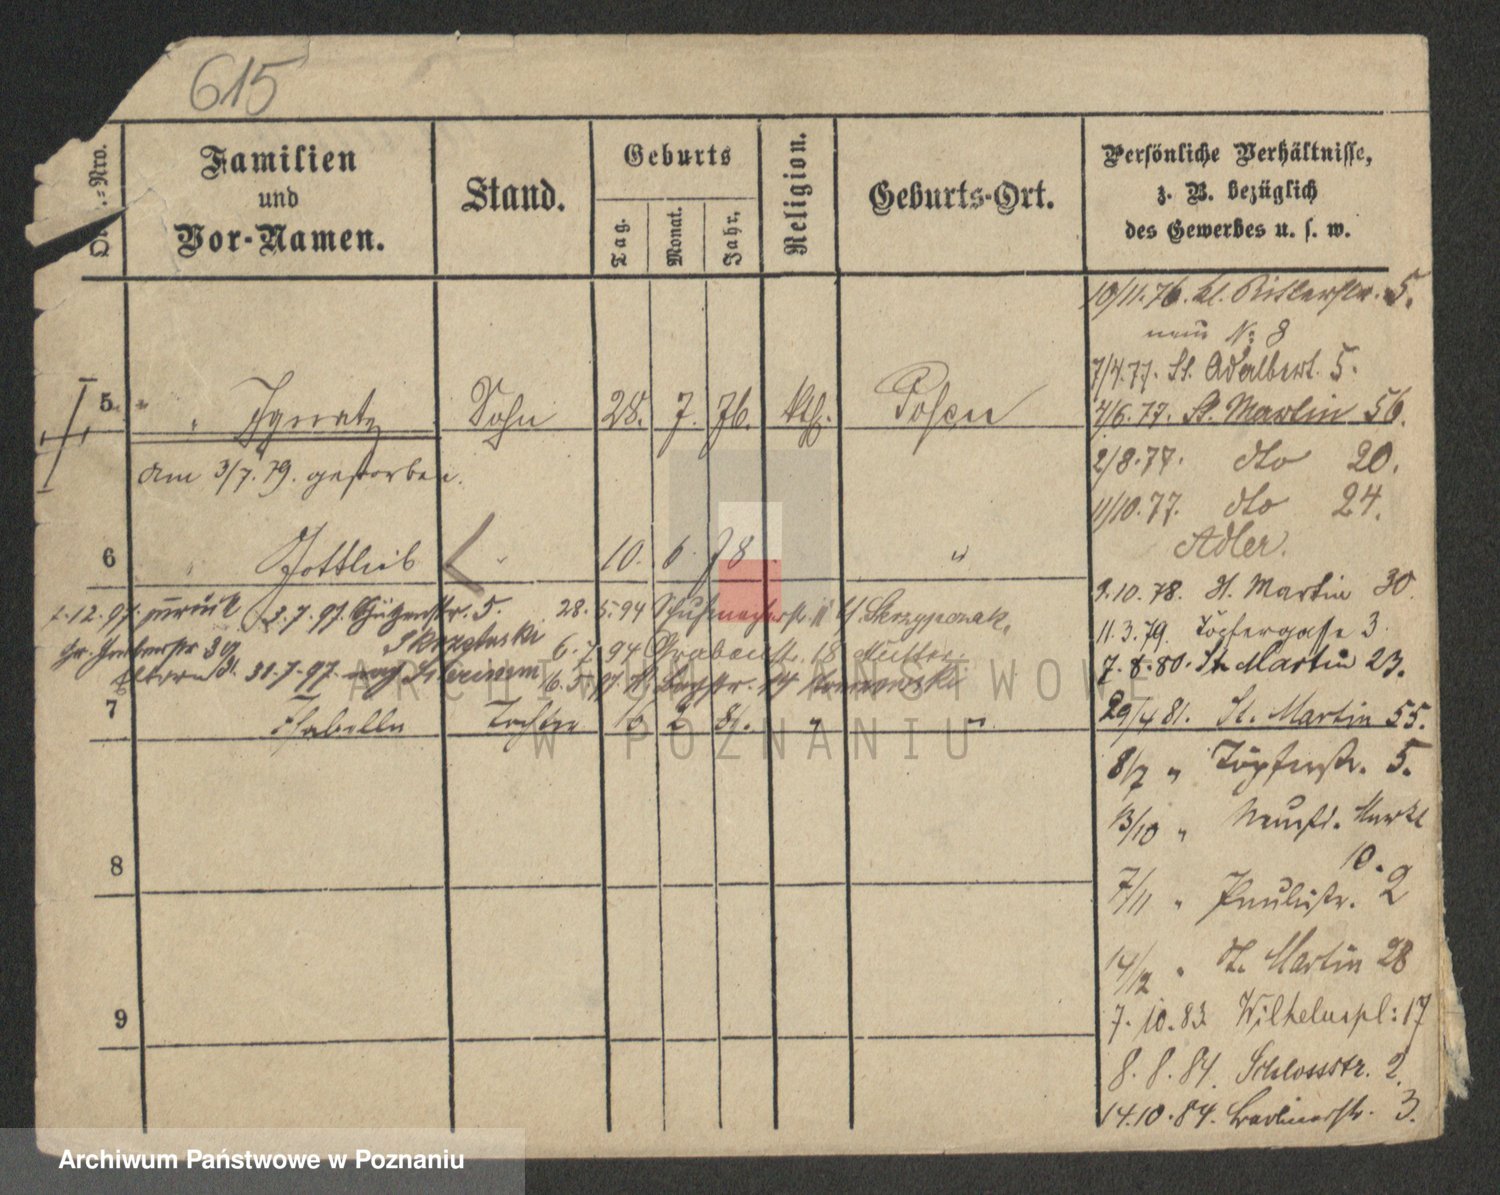 615
Nro.
Familien
und
Vor-Namen.
Stand.
Geburts
Tag.
Monat.
Jahr.
Religion.
Geburts-Ort.
Persönliche Verhältnisse,
z. B. bezüglich
des Gewerbes u. s. w.
10/11.76. kl. Ritterstr. 5.
neue No 8
7/4.77. St. Adalbert. 5.
5 " Ignatz Sohn 28. 7. 76. kth. Posen
4/6.77. St. Martin 56.
am 3/7.79. gestorben.
2/8.77. dto 20.
11/10.77. dto 24.
Adler.
6 " Gottlieb " 10. 6. 78 "
9.10.78. St. Martin 30
2.12.97. zurück 3.7.97. Schützenstr. 5. 28.5.94 Schuhmacherstr. 11 b/ Skrzypczak.
11.3.79. Töpfergasse 3
Gr. Gerberstr 39 Skrzetuski 6.7.94 Grabenstr. 18 Mutter.
7.8.80. St. Martin 23.
Eltern 31.7.97. nach
16.5.97
7 Isabella Tochter 16 2 81. " "
29/4 81. St. Martin 55.
8/7 " Töpferstr. 5.
13/10 " Neust. Markt
10.
8
7/11 " Paulistr. 2
14/12 " St. Martin 28
9
7.10.83. Wilhelmspl: 17
8.8.84. Schlossstr. 2.
14.10.84. 3.
ARCHIWUM PAŃSTWOWE
W POZNANIU
Archiwum Państwowe w Poznaniu